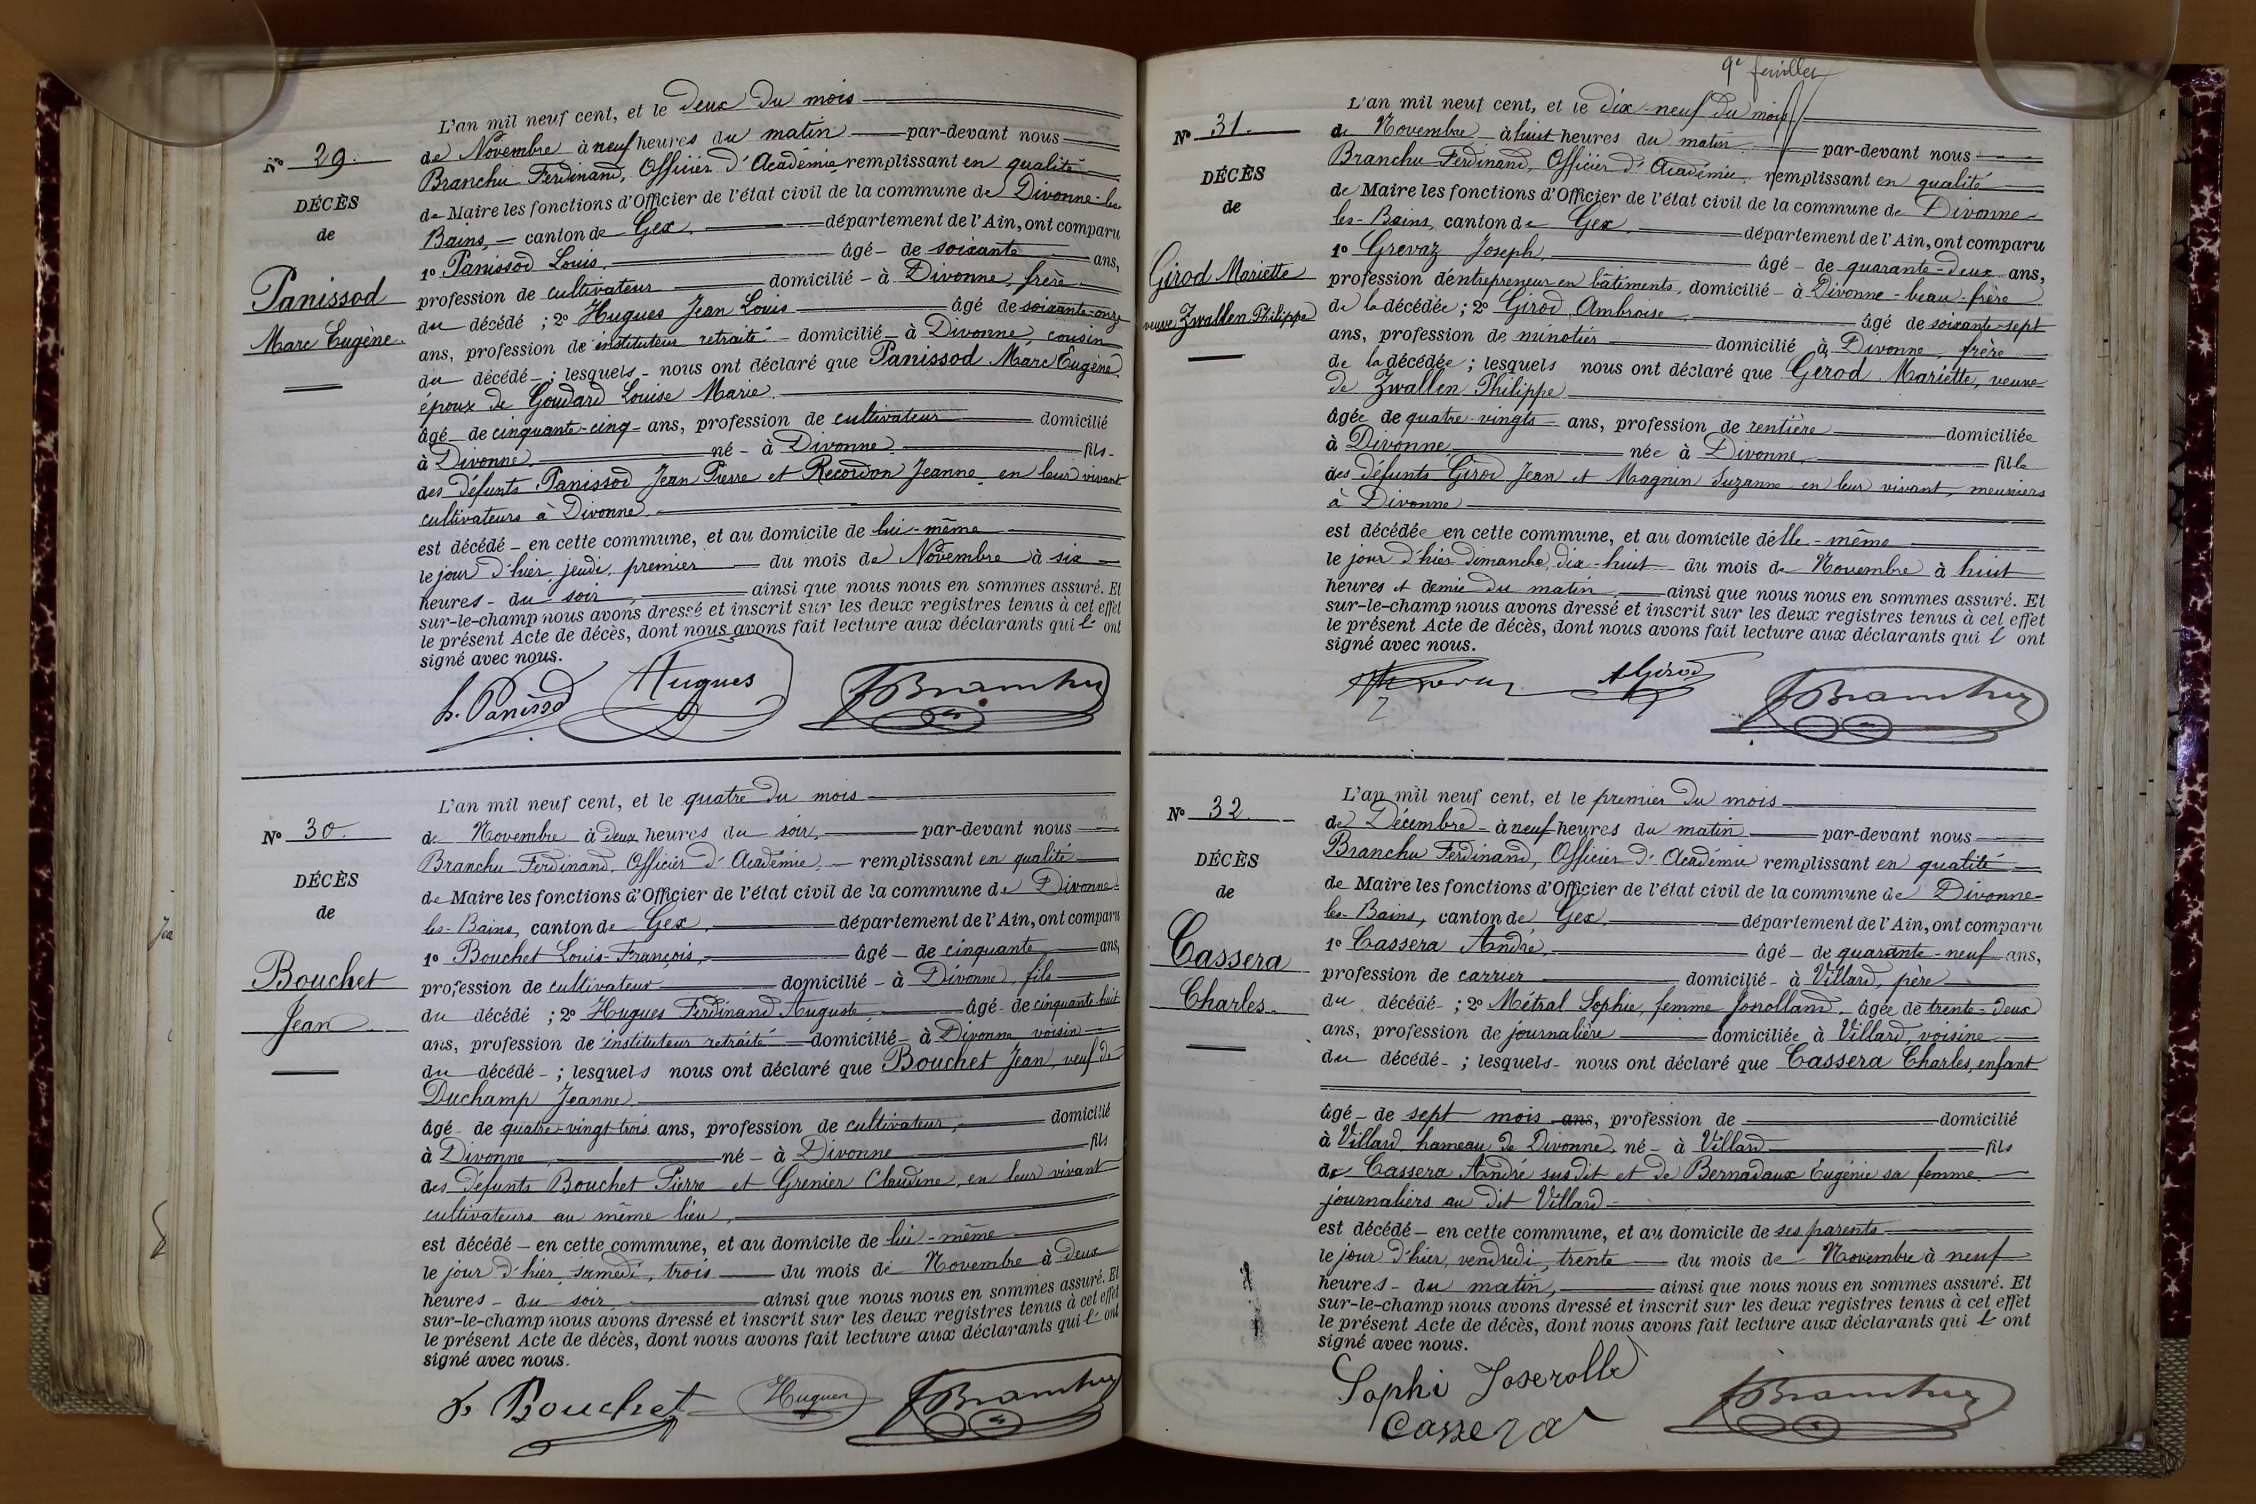 L'an mil neuf cent, et le deux du mois
No 29.
de Novembre à neuf heures du matin par-devant nous
Branchu Ferdinand, Officier d'Académie remplissant en qualité
DÉCÈS
de Maire les fonctions d'Officier de l'état civil de la commune de Divonne-les
de
Bains, canton de Gex, département de l'Ain, ont comparu
1o Panissod Louis, âgé de soixante ans,
Panissod
profession de cultivateur domicilié à Divonne, frère
du décédé ; 2o Hugues Jean Louis âgé de soixante-onze
Marc Eugène.
ans, profession de instituteur retraité domicilié à Divonne, cousin
du décédé ; lesquels nous ont déclaré que Panissod Marc Eugène
époux de Goudard Louise Marie.
âgé de cinquante-cinq ans, profession de cultivateur domicilié
à Divonne. né à Divonne. fils
des défunts Panissod Jean Pierre et Recordon Jeanne en leur vivant
cultivateurs à Divonne.
est décédé en cette commune, et au domicile de lui-même
le jour d'hier, jeudi, premier du mois de Novembre à six
heures du soir, ainsi que nous nous en sommes assuré. Et
sur-le-champ nous avons dressé et inscrit sur les deux registres tenus à cet effet
le présent Acte de décès, dont nous avons fait lecture aux déclarants qui l' ont
signé avec nous.
L. Panissod Hugues FBranchu
L'an mil neuf cent, et le quatre du mois
No 30.
de Novembre à deux heures du soir, par-devant nous
Branchu Ferdinand, Officier d'Académie, remplissant en qualité
DÉCÈS
de Maire les fonctions d'Officier de l'état civil de la commune de Divonne-
de
les-Bains, canton de Gex, département de l'Ain, ont comparu
1o Bouchet Louis-François, âgé de cinquante ans,
Bouchet
profession de cultivateur domicilié à Divonne, fils
du décédé ; 2o Hugues Ferdinand Auguste, âgé de cinquante-huit
Jean
ans, profession de instituteur retraité domicilié à Divonne voisin
du décédé ; lesquels nous ont déclaré que Bouchet Jean, veuf de
Duchamp Jeanne.
âgé de quatre-vingt-trois ans, profession de cultivateur, domicilié
à Divonne, né à Divonne fils
des défunts Bouchet Pierre et Grenier Claudine, en leur vivant
cultivateurs au même lieu,
est décédé en cette commune, et au domicile de lui-même
le jour d'hier, samedi, trois du mois de Novembre à deux
heures du soir, ainsi que nous nous en sommes assuré. Et
sur-le-champ nous avons dressé et inscrit sur les deux registres tenus à cet effet
le présent Acte de décès, dont nous avons fait lecture aux déclarants qui l' ont
signé avec nous.
Bouchet Hugues FBranchu
9e feuillet
L'an mil neuf cent, et le dix-neuf du mois
No 31.
de Novembre à huit heures du matin par-devant nous
Branchu Ferdinand, Officier d'Académie, remplissant en qualité
DÉCÈS
de Maire les fonctions d'Officier de l'état civil de la commune de Divonne-
de
les-Bains, canton de Gex, département de l'Ain, ont comparu
1o Grevaz Joseph, âgé de quarante-deux ans,
Girod Mariette
profession d'entrepreneur en bâtiments, domicilié à Divonne - beau-frère
veuve Zwallen Philippe
de la décédée ; 2o Girod Ambroise âgé de soixante-sept
ans, profession de minotier domicilié à Divonne, frère
de la décédée ; lesquels nous ont déclaré que Gerod Mariette, veuve
de Zwallen Philippe
âgée de quatre-vingts ans, profession de rentière domiciliée
à Divonne, née à Divonne, fille
des défunts Girod Jean et Magnin Suzanne en leur vivant, meuniers
à Divonne
est décédée en cette commune, et au domicile d'elle-même
le jour d'hier dimanche, dix-huit du mois de Novembre à huit
heures et demie du matin, ainsi que nous nous en sommes assuré. Et
sur-le-champ nous avons dressé et inscrit sur les deux registres tenus à cet effet
le présent Acte de décès, dont nous avons fait lecture aux déclarants qui l' ont
signé avec nous.
AGirod FBranchu
L'an mil neuf cent, et le premier du mois
No 32.
de Décembre à neuf heures du matin par-devant nous
Branchu Ferdinand, Officier d'Académie remplissant en qualité
DÉCÈS
de Maire les fonctions d'Officier de l'état civil de la commune de Divonne-
de
les-Bains, canton de Gex, département de l'Ain, ont comparu
1o Cassera André, âgé de quarante-neuf ans,
Cassera
profession de carrier domicilié à Villard, père
Charles.
du décédé ; 2o Métral Sophie, femme Jonolland, âgée de trente-deux
ans, profession de journalière domiciliée à Villard, voisine
du décédé ; lesquels nous ont déclaré que Cassera Charles, enfant
âgé de sept mois ans, profession de domicilié
à Villard hameau de Divonne, né à Villard fils
de Cassera André susdit et de Bernadaux Eugénie sa femme
journaliers au dit Villard
est décédé en cette commune, et au domicile de ses parents
le jour d'hier, vendredi, trente du mois de Novembre à neuf
heures du matin, ainsi que nous nous en sommes assuré. Et
sur-le-champ nous avons dressé et inscrit sur les deux registres tenus à cet effet
le présent Acte de décès, dont nous avons fait lecture aux déclarants qui l' ont
signé avec nous.
Sophi Joserolle FBranchu
Cassera